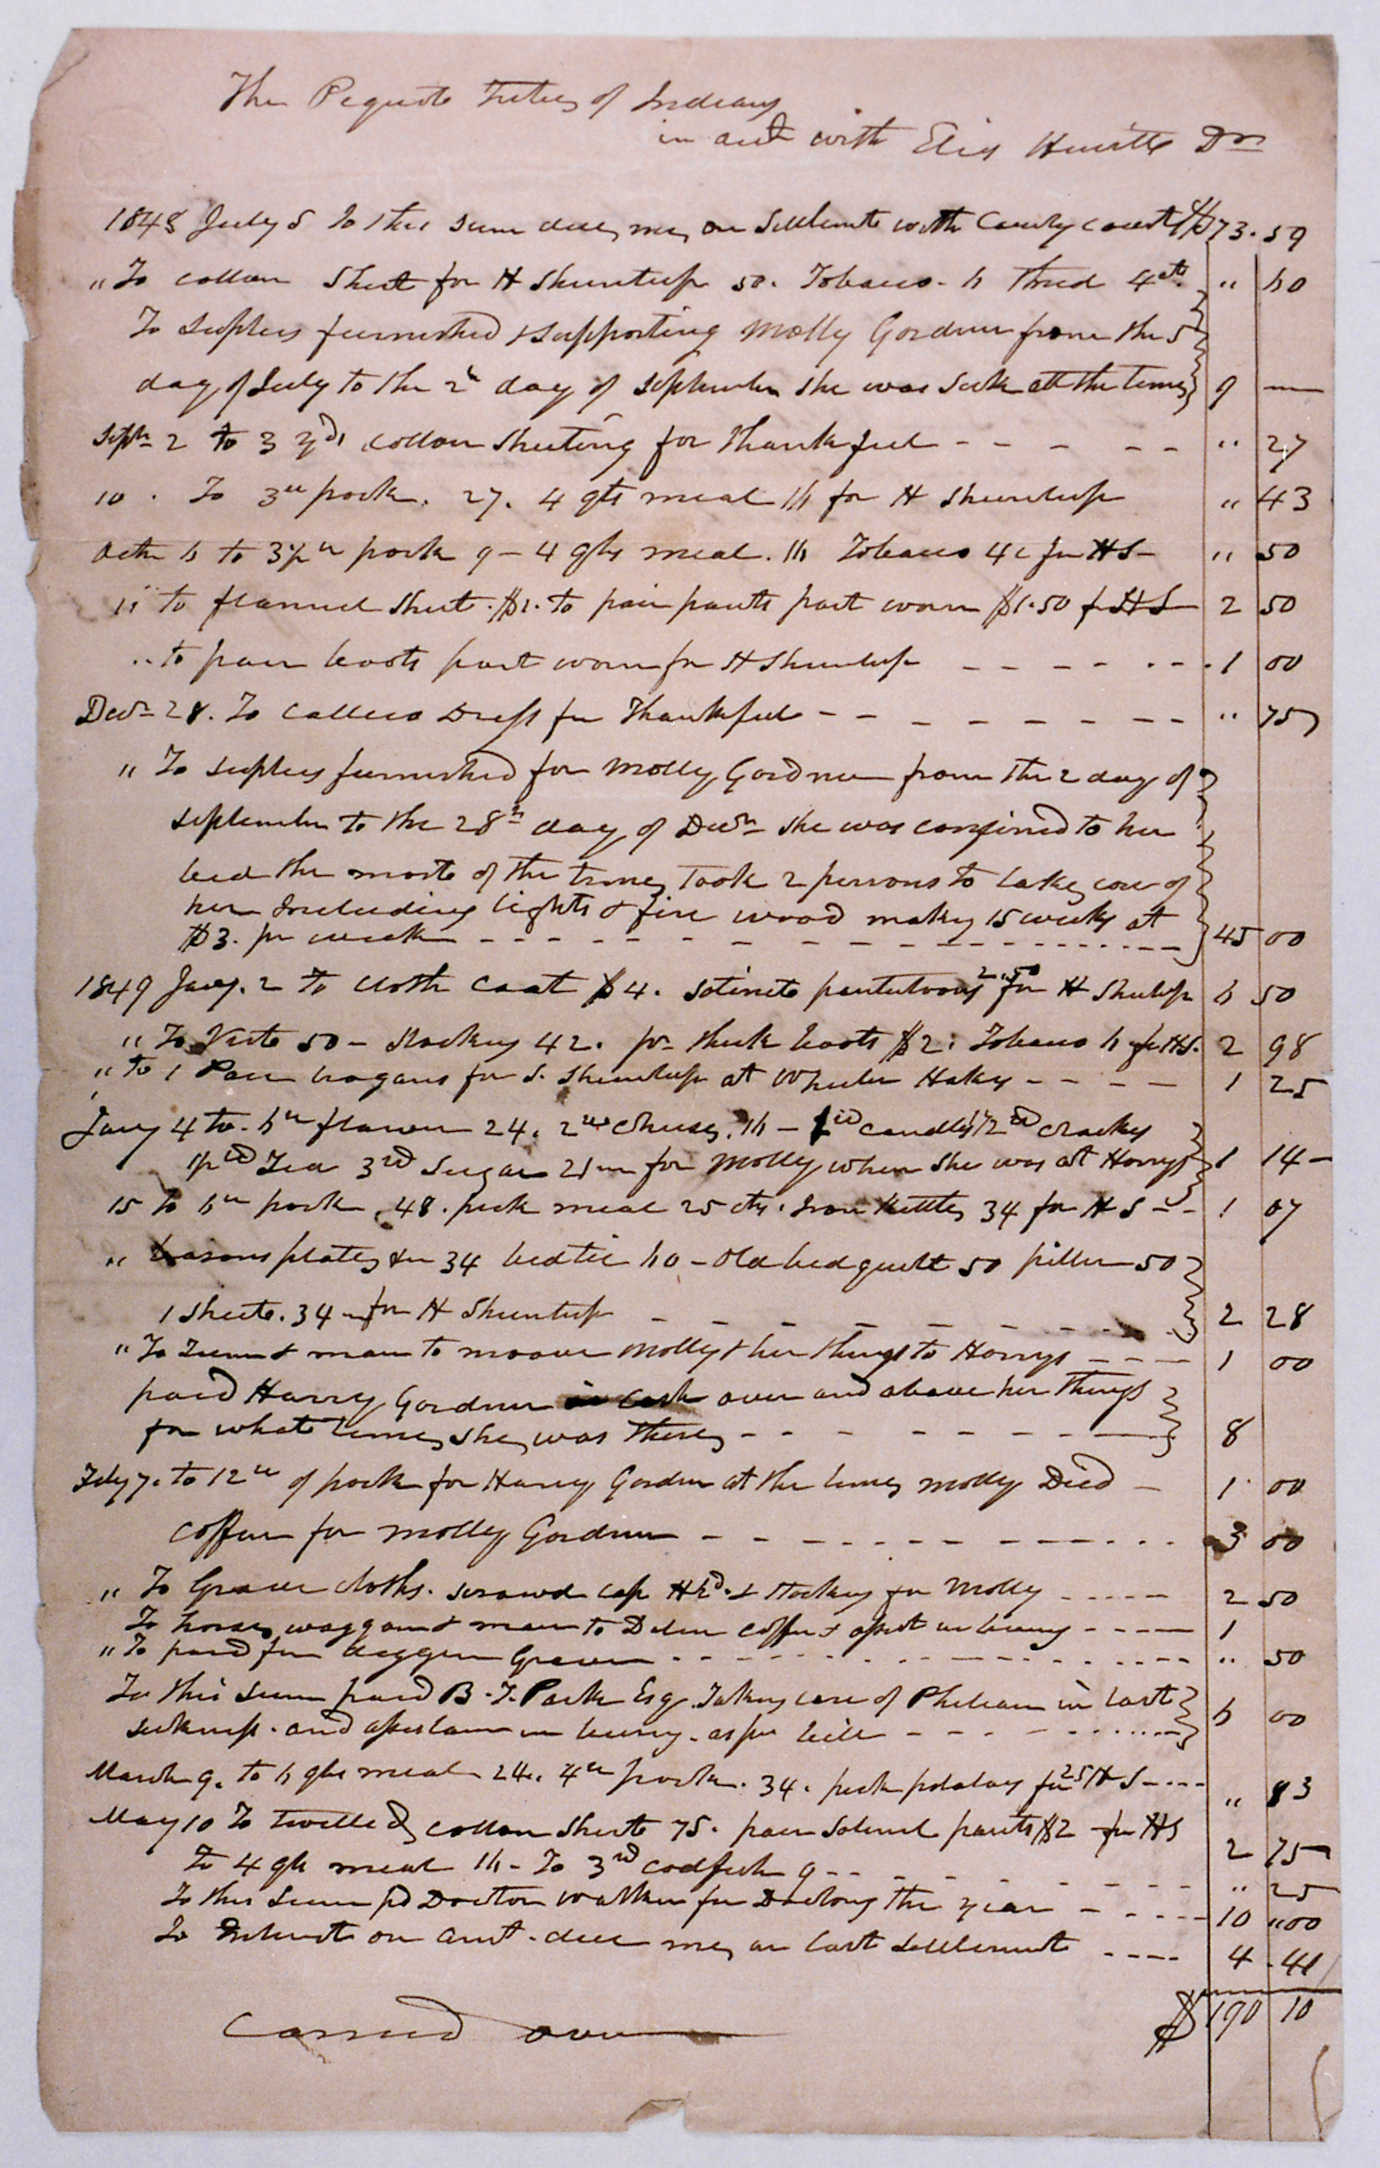 The Pequote tribes of Indians
in act with Elias Hewitt Dr
1848 July 5 To this sum due me on Settlement with County court $73.59
" To cotton Shirt for H Shuntup 50. Tobacco 6 thred 4cts " 60
To suplies furnished & supporting Molly Gordner from the 5
day of July to the 2d day of September she was sick at the time 9 —
Septr 2 to 3 yds cotton sheeting for Thankfull " 27
10 . To 3 lb pork . 27. 4 qts meal 16 for H Shuntup " 43
Octr 6 to 3½ lb pork 4 qts meal . 16 Tobacco 4c for HS " 50
11 to flannel Shirt . $1. to pair pants part worn $1.50 for HS 2 50
" to pair boots part worn for H Shuntup 1 00
Decr 28. To callico Dress for Thankfull " 75
" To suplies furnished for Molly Gordner from the 2 day of
September to the 28th day of Decr she was confined to her
bed the most of the time, took 2 persons to take care of
her Including lights & fire wood making 15 weeks at
$3. per week 45 00
1849 Jany. 2 to cloth coat $4. satinete pantaloons 2.50 for H Shuntup 6 50
" To Vest 50 - Stockings 42. pr thick boots $2: Tobacco 6 for HS. 2 98
" to 1 Pair brogans for S. Shuntup at Wheeler Hakes 1 25
Jany 4 to 6 lb flower 24. 2 lb cheese. 16 - 1 lb candles 1/2 lb crackers
lb Tea 3 lb Sugar 21 for Molly when she was at Harrys 1 14
15 to 6 lb pork . 48 . peck meal 25 cts . Iron Kettle 34 for H S 1 07
" basons plates 34 bedtic 60 - old bed quilt 50 piller 50
1 sheete. 34 for H Shuntup 2 28
" To Team & man to moove Molly & her things to Harrys 1 00
paid Harry Gordner in cash over and above her things
for what time she was there 8
Feby 7. to 12 lb of pork for Harry Gordner at the time Molly Died 1 00
coffin for Molly Gordner 3 00
" To Grave cloths . cap & stockings for Molly 2 50
To horse waggon & man to Deliver coffin & assist in burying 1
" To paid for diggin Grave " 50
To this sum paid B. F. Park Esq. Taking care of in last
sickness . and assistance in burying . as per bill 6 00
March 9. to 6 qts meal 24. 4 lb pork . 34 . peck potatoes 25 for H S " 83
May 10 To twilled cotton Shirt 75. pair satinet pants $2 for HS 2 75
to 4 qts meal 16 - To 3 lb codfish 9 " 25
To this sum pd Doctor Walker for Doctoring the year 10 " 00
To Interest on amt . due me on last settlement 4 . 41
Carried over $190 10